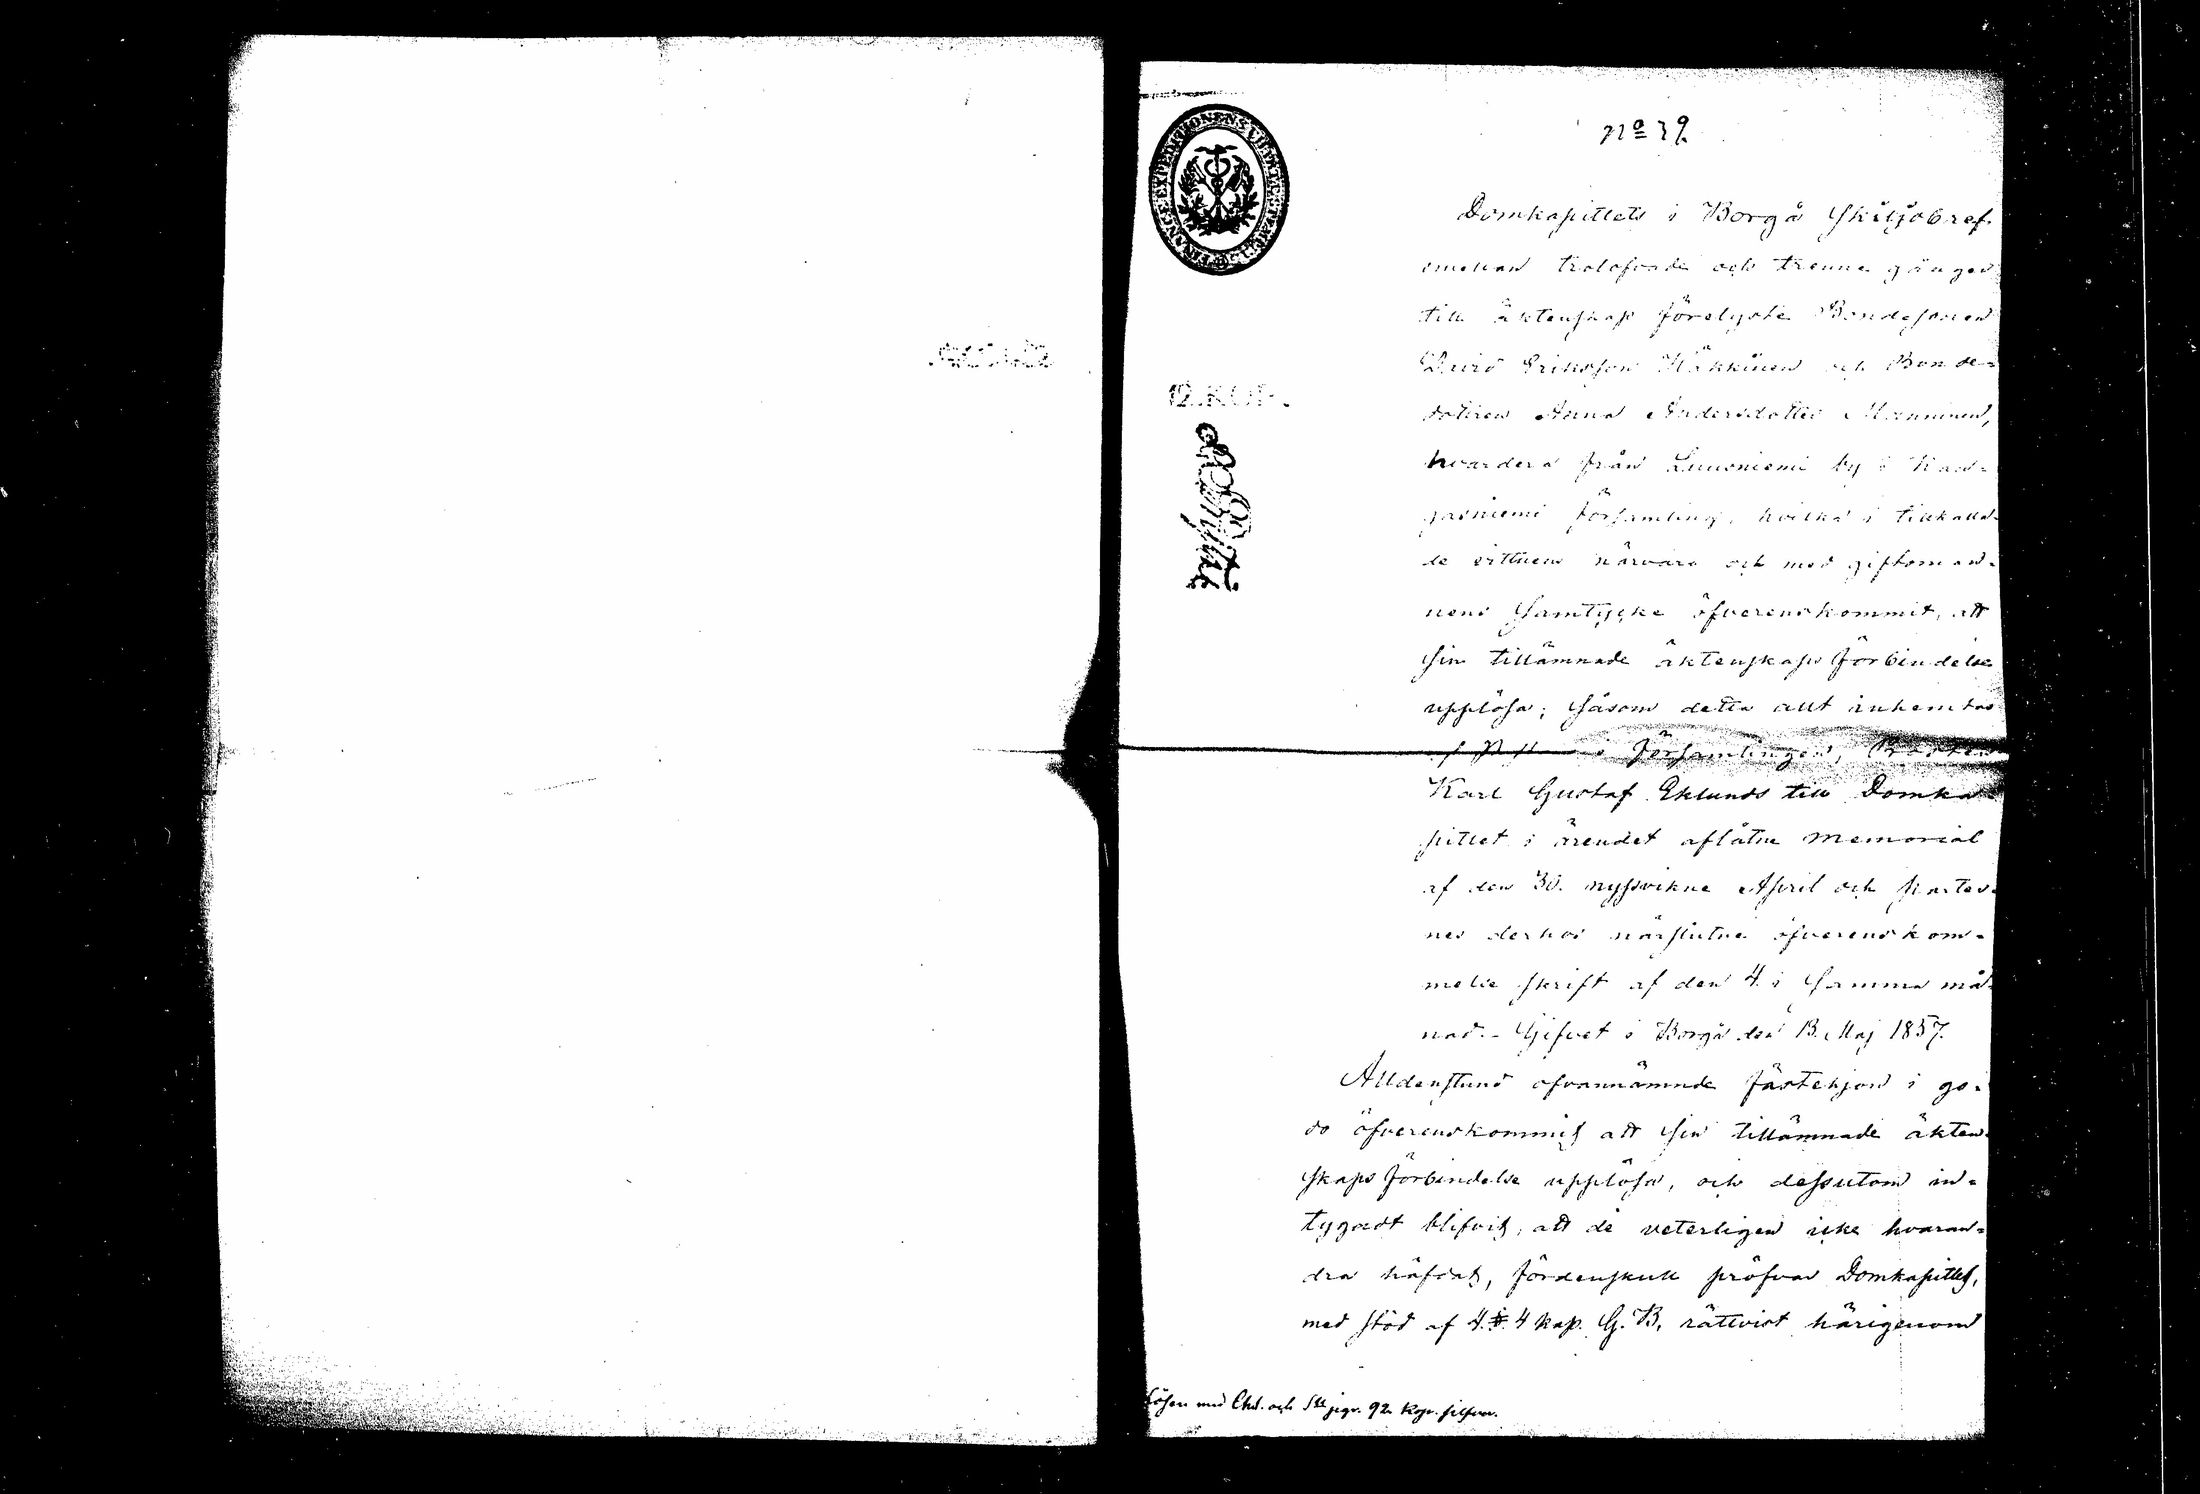 No 39.
Domkapitlets i Borgå Skiljobref
emellan trolofvade och trenne gånger
till äktenskap förelyste Bondesonen
David Eriksson Häkkinen och Bonde-
dottren Anna Andersdotter Manninen,
hvardera från Luusniemi by i Kan-
gasniemi församling, hvilka i tillkalla-
de vittnens närvaro och med giftoman-
nens samtycke öfverenskommit, att
sin tillämnade äktenskaps förbindelse
upplösa; såsom detta allt inhemtas
af i församlingen, Prosten
Karl Gustaf Eklunds till Domka-
pitlet i ärendet aflåtne memorial
af den 30. nyssvikne April och parter-
nes derhos närslutne öfverenskom-
melse skrift af den 4. i samma må-
nad. - Gifvet i Borgå den 13. Maj 1857.
Alldenstund ofvannämnde fästehjon i go-
do öfverenskommit att sin tillämnade äkten-
skaps förbindelse upplösa, och dessutom in-
tygadt blifvit, att de veterligen icke hvaran-
dra häfdat, fördenskull pröfvar Domkapitlet,
med stöd af 4. §. 4 kap. G. B. rättvist härigenom
Lösen med Chd. och 92 Kop. silfver.
12.KOP.